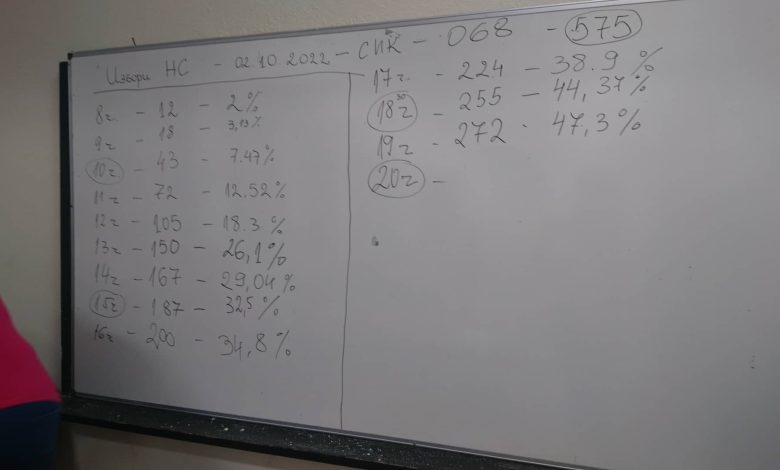 Избори НС - 02.10.2022 - СИК - 068 - 575
8ч. - 12 - 2%
9ч - 18 - 3,13%
10ч - 43 - 7.47%
11ч - 72 - 12.52%
12ч - 105 - 18.3%
13ч - 150 - 26,1%
14ч - 167 - 29,04%
15ч - 187 - 32,5%
16ч - 200 - 34,8%
17ч. - 224 - 38.9%
18³⁰ч - 255 - 44,37%
19ч - 272 - 47,3%
20ч -